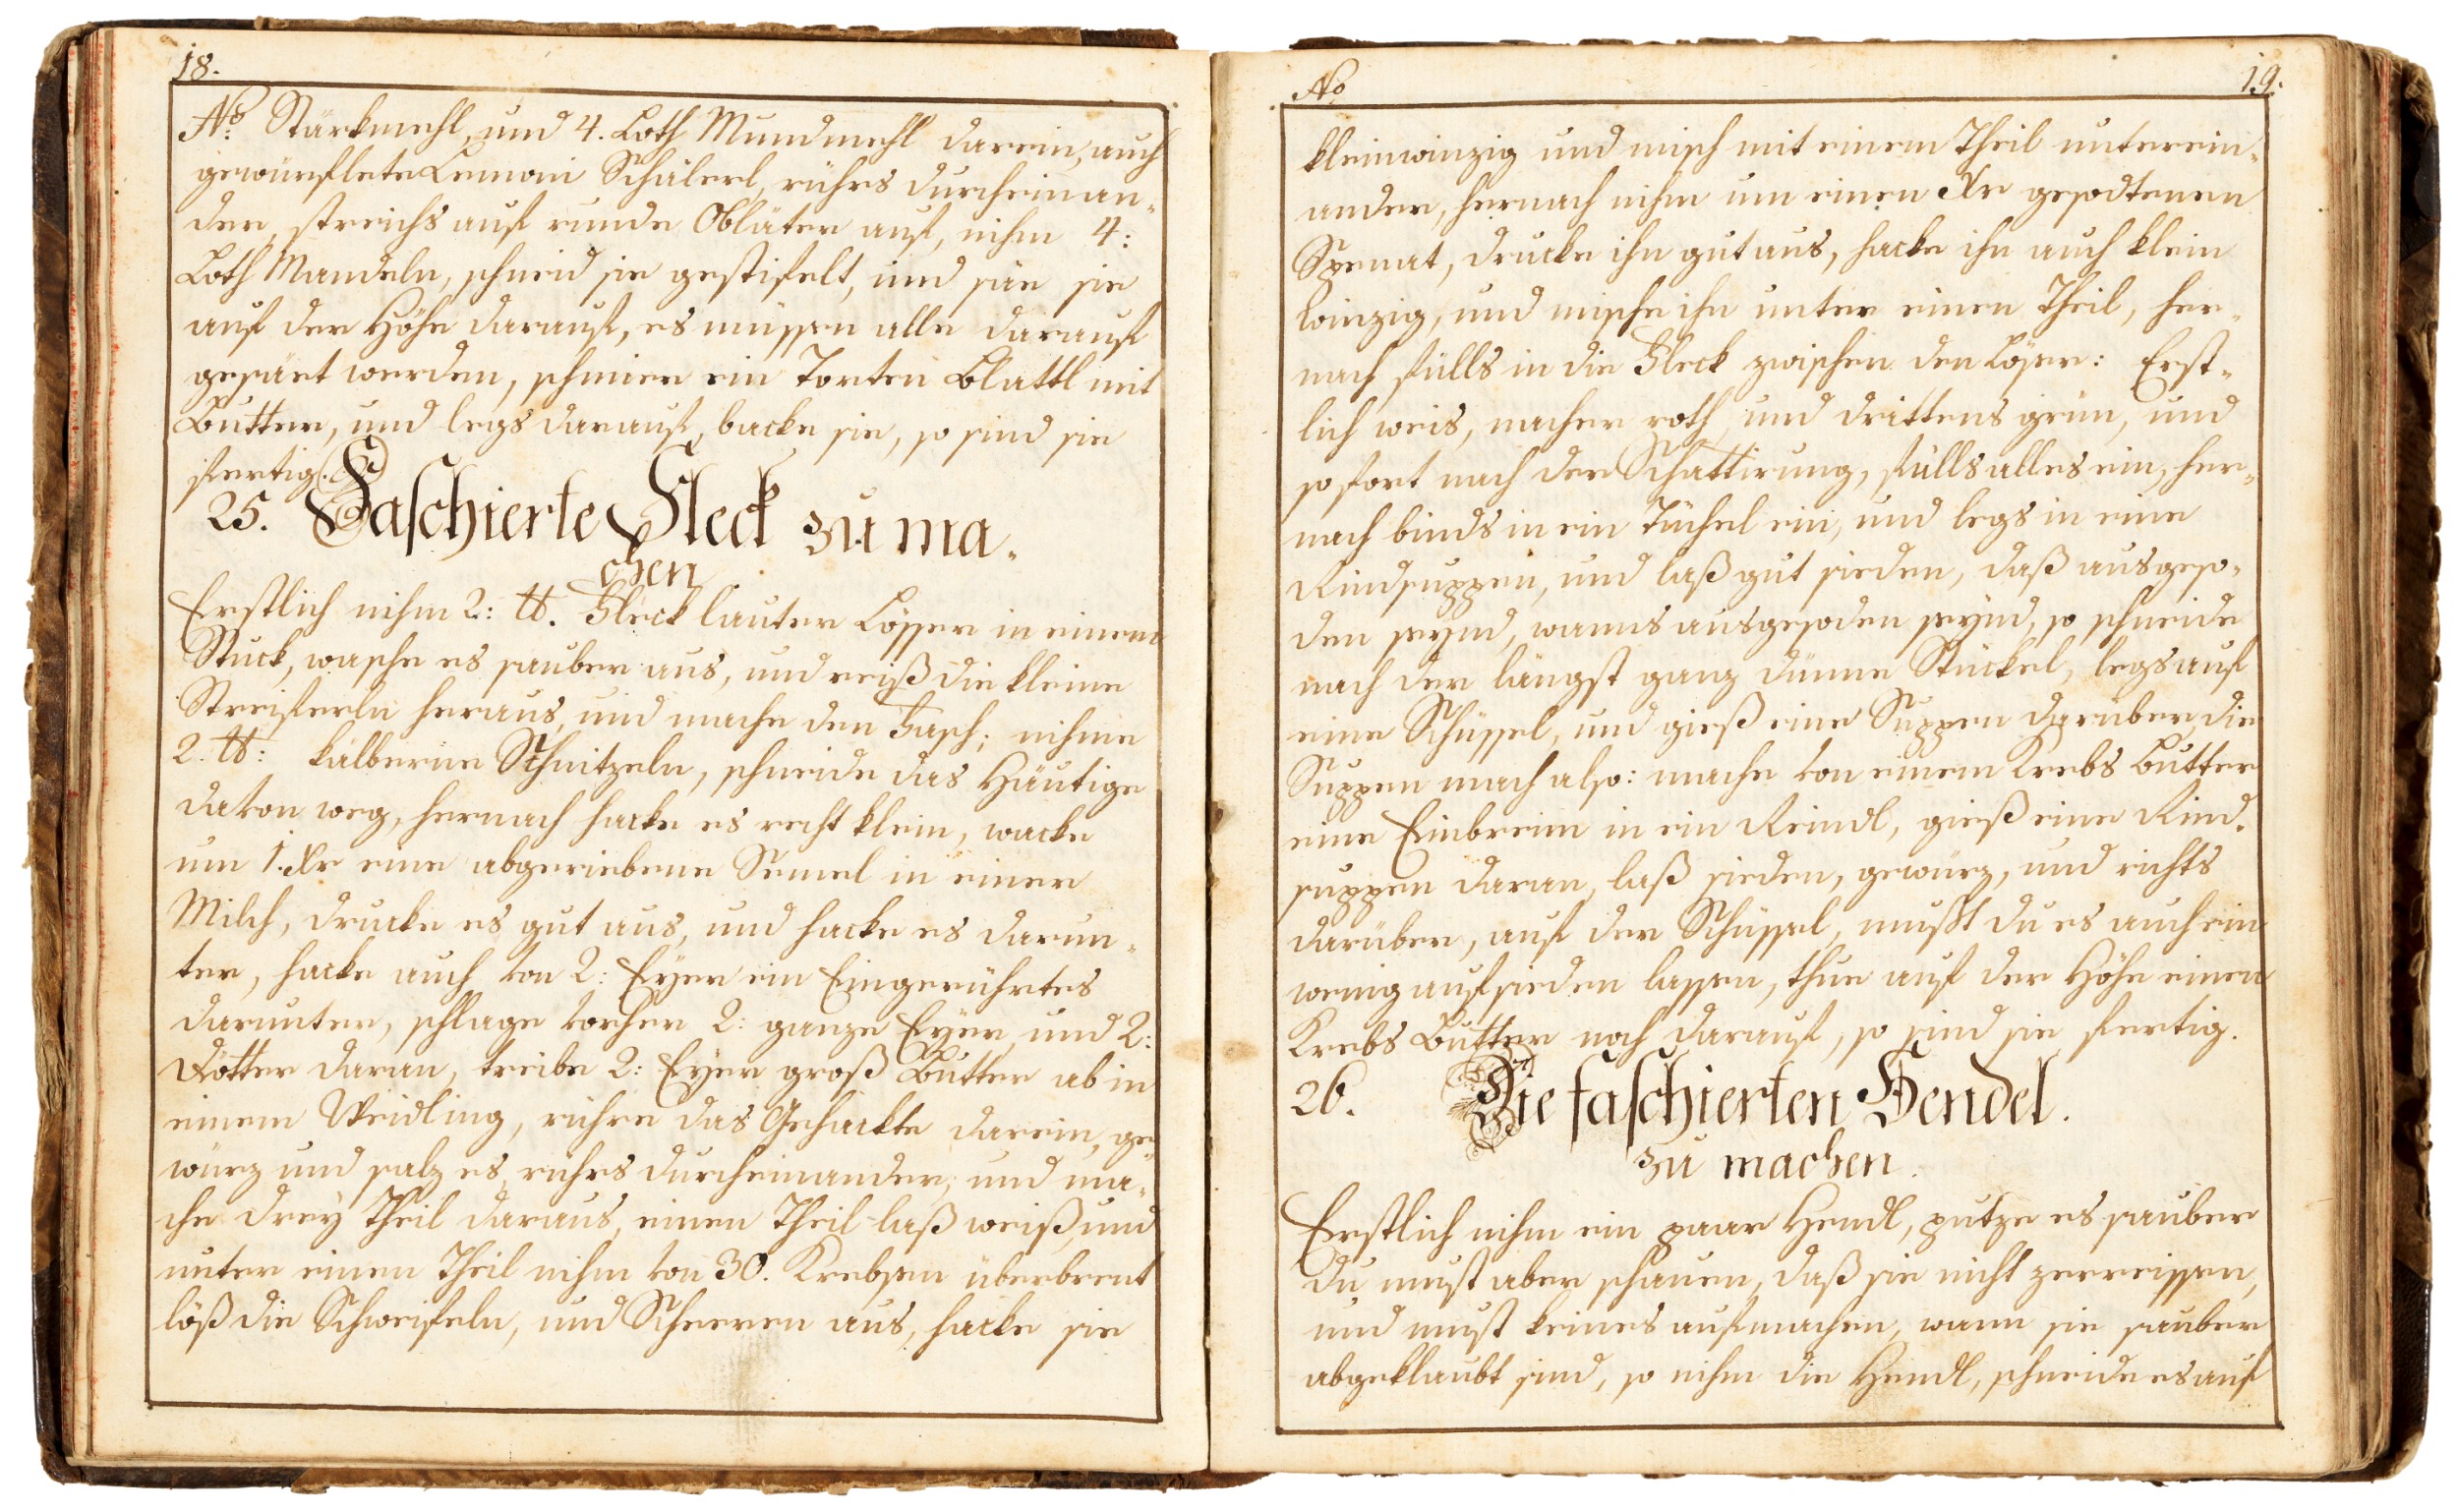 18.
No: Stärkmehl, und 4. Loth Mundmehl darein, auch
gewürflete Lemoni Schälerl, rührs durcheinan-
der, streichs auf runde Obläter auf, nihm 4:
Loth Mandeln, schneid sie gestifelt, und säe sie
auf der Höhe darauf, es müssen alle darauf
gesäet werden, schmier ein Torten Blattl mit
Butter, und legs darauf, backe sie, so sind sie
fertig.
25. Faschierte Fleck zu ma-
chen
Erstlich nihm 2: ℔. Fleck lauter Lösser in einem
Stuck, wasche es sauber aus, und reiß die kleine
Streiferln heraus, und mache den Fasch; nihme
2. ℔: kälberne Schnitzeln, schneide das Häutige
davon weg, hernach hacke es recht klein, waeke
um 1. Xr eine abgeriebene Semel in einer
Milch, drucke es gut aus, und hacke es darun-
ter, hacke auch von 2: Eyer ein Eingerührtes
darunter, schlage vorher 2: ganze Eyer, und 2:
Dötter daran, treibe 2: Eyer groß Butter ab in
einem Weidling, rühre das Gehackte darein, ge-
würz und salz es, rührs durcheinander, und ma-
che drey Theil daraus, einen Theil laß weiß, und
unter einen Theil nihm von 30. Krebsen überbrent
löß die Schweifeln, und Scheeren aus, hacke sie
No 19.
kleinwinzig und misch mit einem Theil unterein-
ander, hernach nihm um einen Xr gesodtenen
Spenat, drucke ihn gut aus, hacke ihn auch klein
winzig, und mische ihn unter einen Theil, her-
nach fülls in die Fleck zwischen den Löser: Erst-
lich weis, nacher roth, und drittens grün, und
so fort nach der Schattirung, fülls alles ein, her-
nach binds in ein Tüchel ein, und legs in eine
Rindsuppen, und laß gut sieden, daß ausgeso-
den seynd, wanns ausgesoden seynd, so schneide
nach der längst ganz dünne Stückel, legs auf
eine Schüssel, und gieß eine Suppen darüber, die
Suppen mach also: mache von einem Krebs Butter
eine Einbrenn in ein Reindl, gieß eine Rind-
suppen daran, laß sieden, gewürz, und richts
darüber, auf der Schüssel, mußt du es auch ein
wenig aufsieden lassen, thue auf der Höhe einen
Krebs Butter noch darauf, so sind sie fertig.
26. Die faschierten Hendel.
zu machen.
Erstlich nihm ein paar Hendl, putze es sauber
du must aber schauen, daß sie nicht zerreissen,
und must keines aufmachen, wann sie sauber
abgeklaubt sind, so nihm die Hendl, schneide es auf